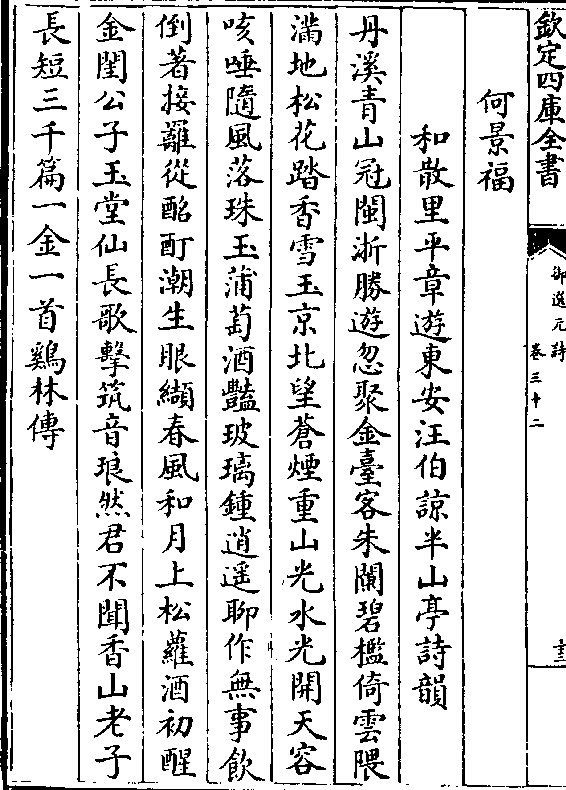 欽定四庫全書
御選元詩
卷三十二
何景福
和散里平章遊東安汪伯諒半山亭詩韻
丹溪青山冠閩浙勝遊忽聚金臺客朱闌碧檻倚雲隈
滿地松花踏香雪玉京北望蒼煙重山光水光開天容
咳唾隨風落珠玉蒲萄酒豔玻璃鍾逍遥聊作無事飲
倒著接䍦從酩酊潮生眼纈春風和月上松蘿酒初醒
金閨公子玉堂仙長歌擊筑音琅然君不聞香山老子
長短三千篇一金一首鷄林傳